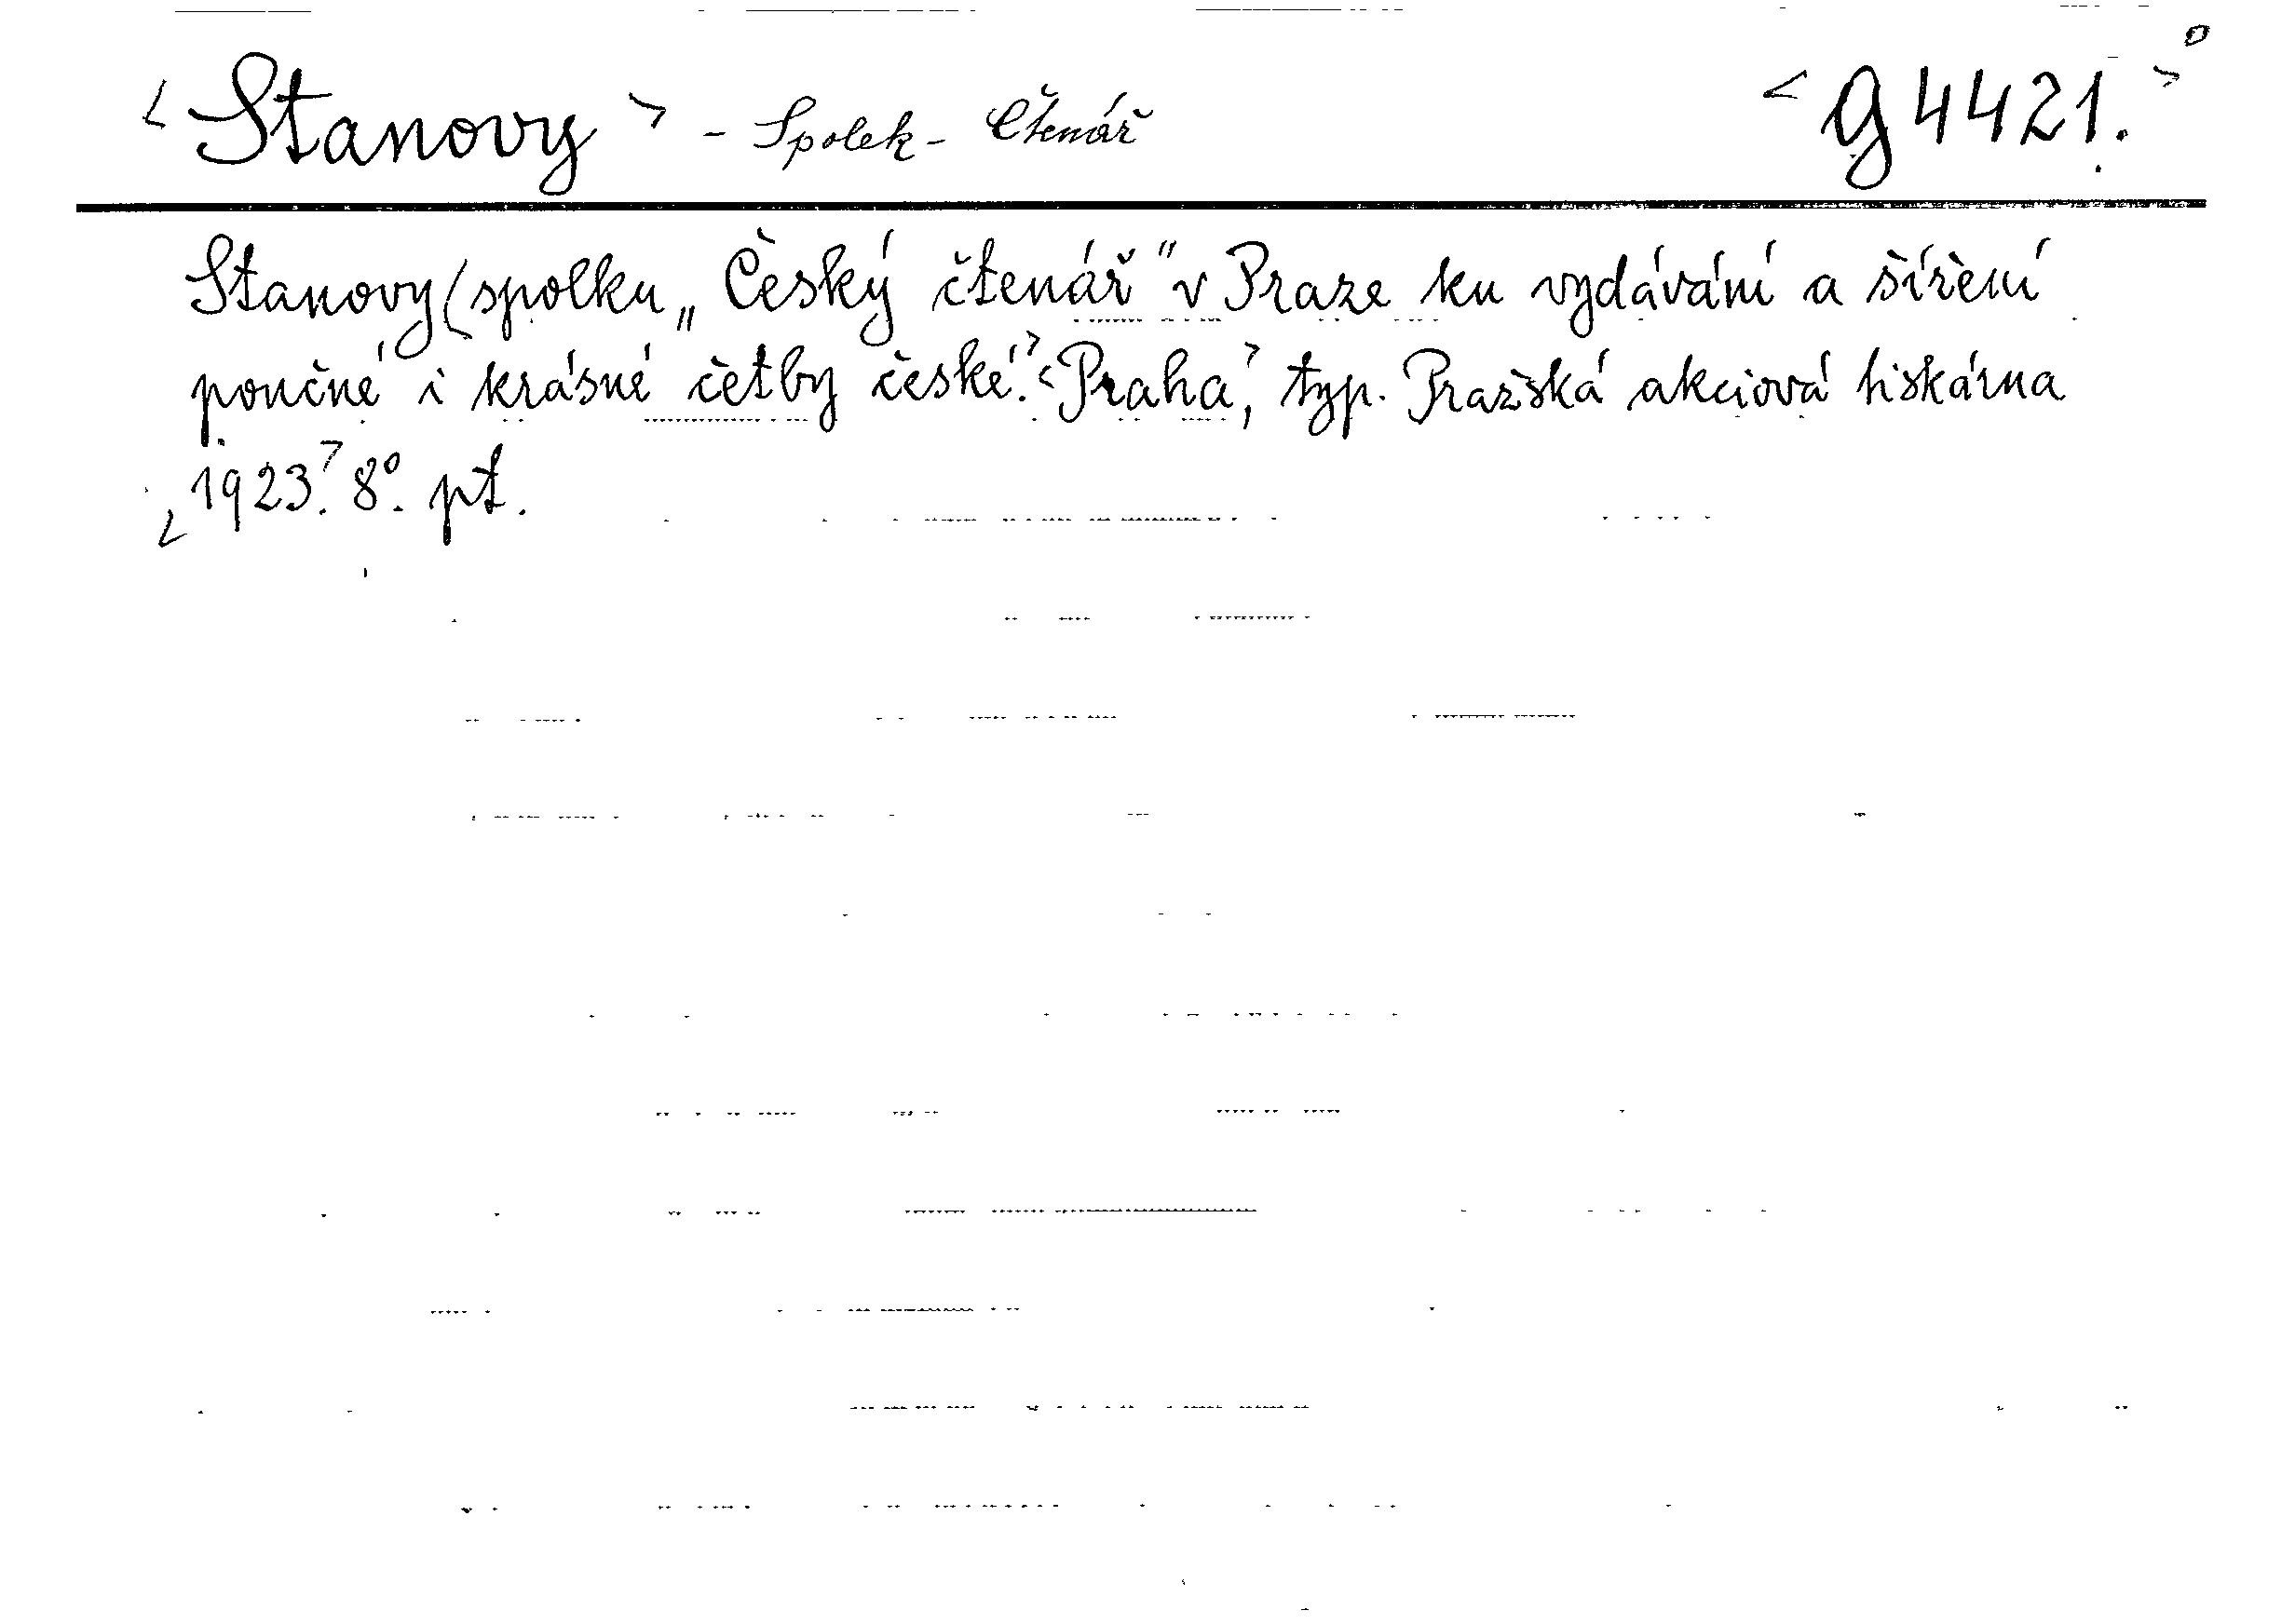 <Stanovy> - Spolek - Čtenář <g 4421.>
Stanovy (spolku „Český čtenář" v Praze ku vydávání a šíření
poučné i krásné četby české.> <Praha,> typ. Pražská akciová tiskárna
<1923.> 8°. pt.